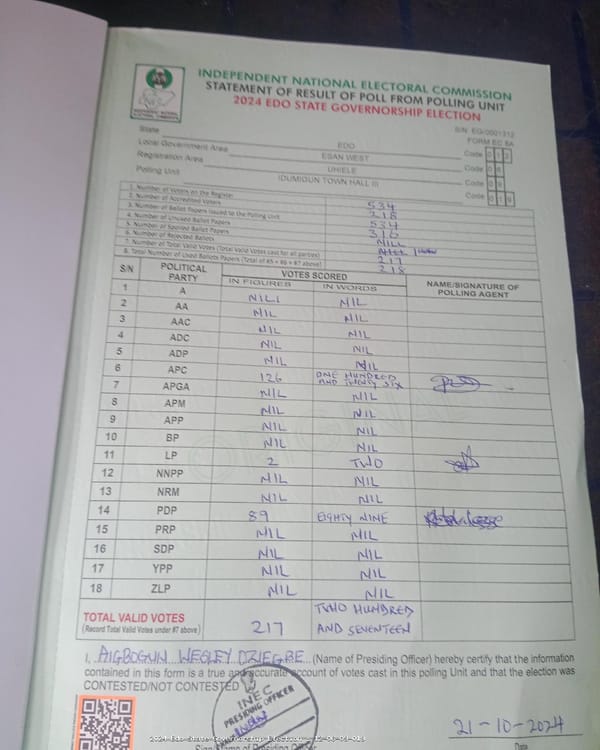 INDEPENDENT NATIONAL ELECTORAL COMMISSION
STATEMENT OF RESULT OF POLL FROM POLLING UNIT
2024 EDO STATE GOVERNORSHIP ELECTION
S/N EG/0001312
FORM EC 8A
State EDO
Local Government Area ESAN WEST Code
Registration Area UHIELE Code
Polling Unit IDUMIGUN TOWN HALL III Code
Code
1. Number of Voters on the Register 534
2. Number of Accredited Voters 218
3. Number of Ballot Papers Issued to the Polling Unit 534
4. Number of Unused Ballot Papers 316
5. Number of Spoiled Ballot Papers NILL
6. Number of Rejected Ballots 1
7. Number of Total Valid Votes (Total Valid Votes cast for all parties) 217
8. Total Number of Used Ballots Papers (Total of #5 + #6 + #7 above) 218
S/N POLITICAL PARTY VOTES SCORED NAME/SIGNATURE OF POLLING AGENT
IN FIGURES IN WORDS
1 A NILL NIL
2 AA NIL NIL
3 AAC NIL NIL
4 ADC NIL NIL
5 ADP NIL NIL
6 APC 126 ONE HUNDRED AND TWENTY SIX
7 APGA NIL NIL
8 APM NIL NIL
9 APP NIL NIL
10 BP NIL NIL
11 LP 2 TWO
12 NNPP NIL NIL
13 NRM NIL NIL
14 PDP 89 EIGHTY NINE
15 PRP NIL NIL
16 SDP NIL NIL
17 YPP NIL NIL
18 ZLP NIL NIL
TOTAL VALID VOTES 217 TWO HUNDRED AND SEVENTEEN
(Record Total Valid Votes under #7 above)
I, AIGBOGUN WESLEY (Name of Presiding Officer) hereby certify that the information
contained in this form is a true and accurate account of votes cast in this polling Unit and that the election was
CONTESTED/NOT CONTESTED
INEC
PRESIDING OFFICER
21-10-2024